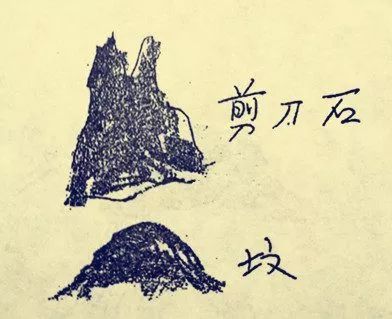 剪刀石
坟